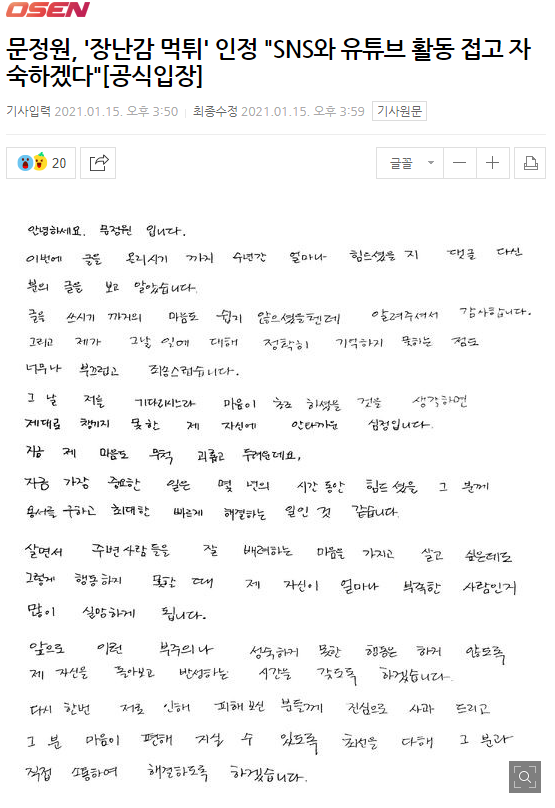 OSEN
문정원, '장난감 먹튀' 인정 "SNS와 유튜브 활동 접고 자
숙하겠다"[공식입장]
기사입력 2021.01.15. 오후 3:50 최종수정 2021.01.15. 오후 3:59 기사원문
20 글꼴
안녕하세요. 문정원 입니다.
이번에 글을 올리시기 까지 수년간 얼마나 힘드셨을지 댓글 다신
분의 글을 보고 알았습니다.
글을 쓰시기 까지의 마음도 쉽지 않으셨을텐데 알려주셔서 감사합니다.
그리고 제가 그날 일에 대해 정확히 기억하지 못하는 점도
너무나 부끄럽고 죄송스럽습니다.
그 날 저를 기다리시느라 마음이 초조 하셨을 것을 생각하면
제대로 챙기지 못한 제 자신에 안타까운 심정입니다.
지금 제 마음도 무척 괴롭고 두려운데요,
지금 가장 중요한 일은 몇 년의 시간 동안 힘드셨을 그 분께
용서를 구하고 최대한 빠르게 해결하는 일인 것 같습니다.
살면서 주변 사람들을 잘 배려하는 마음을 가지고 살고 싶은데도
그렇게 행동하지 못한 때 제 자신이 얼마나 부족한 사람인지
많이 실망하게 됩니다.
앞으로 이런 부주의나 성숙하지 못한 행동은 하지 않도록
제 자신을 돌아보고 반성하는 시간을 갖도록 하겠습니다.
다시 한번 저로 인해 피해 보신 분들께 진심으로 사과 드리고
그 분 마음이 편해 지실 수 있도록 최선을 다해 그 분과
직접 소통하여 해결하도록 하겠습니다.